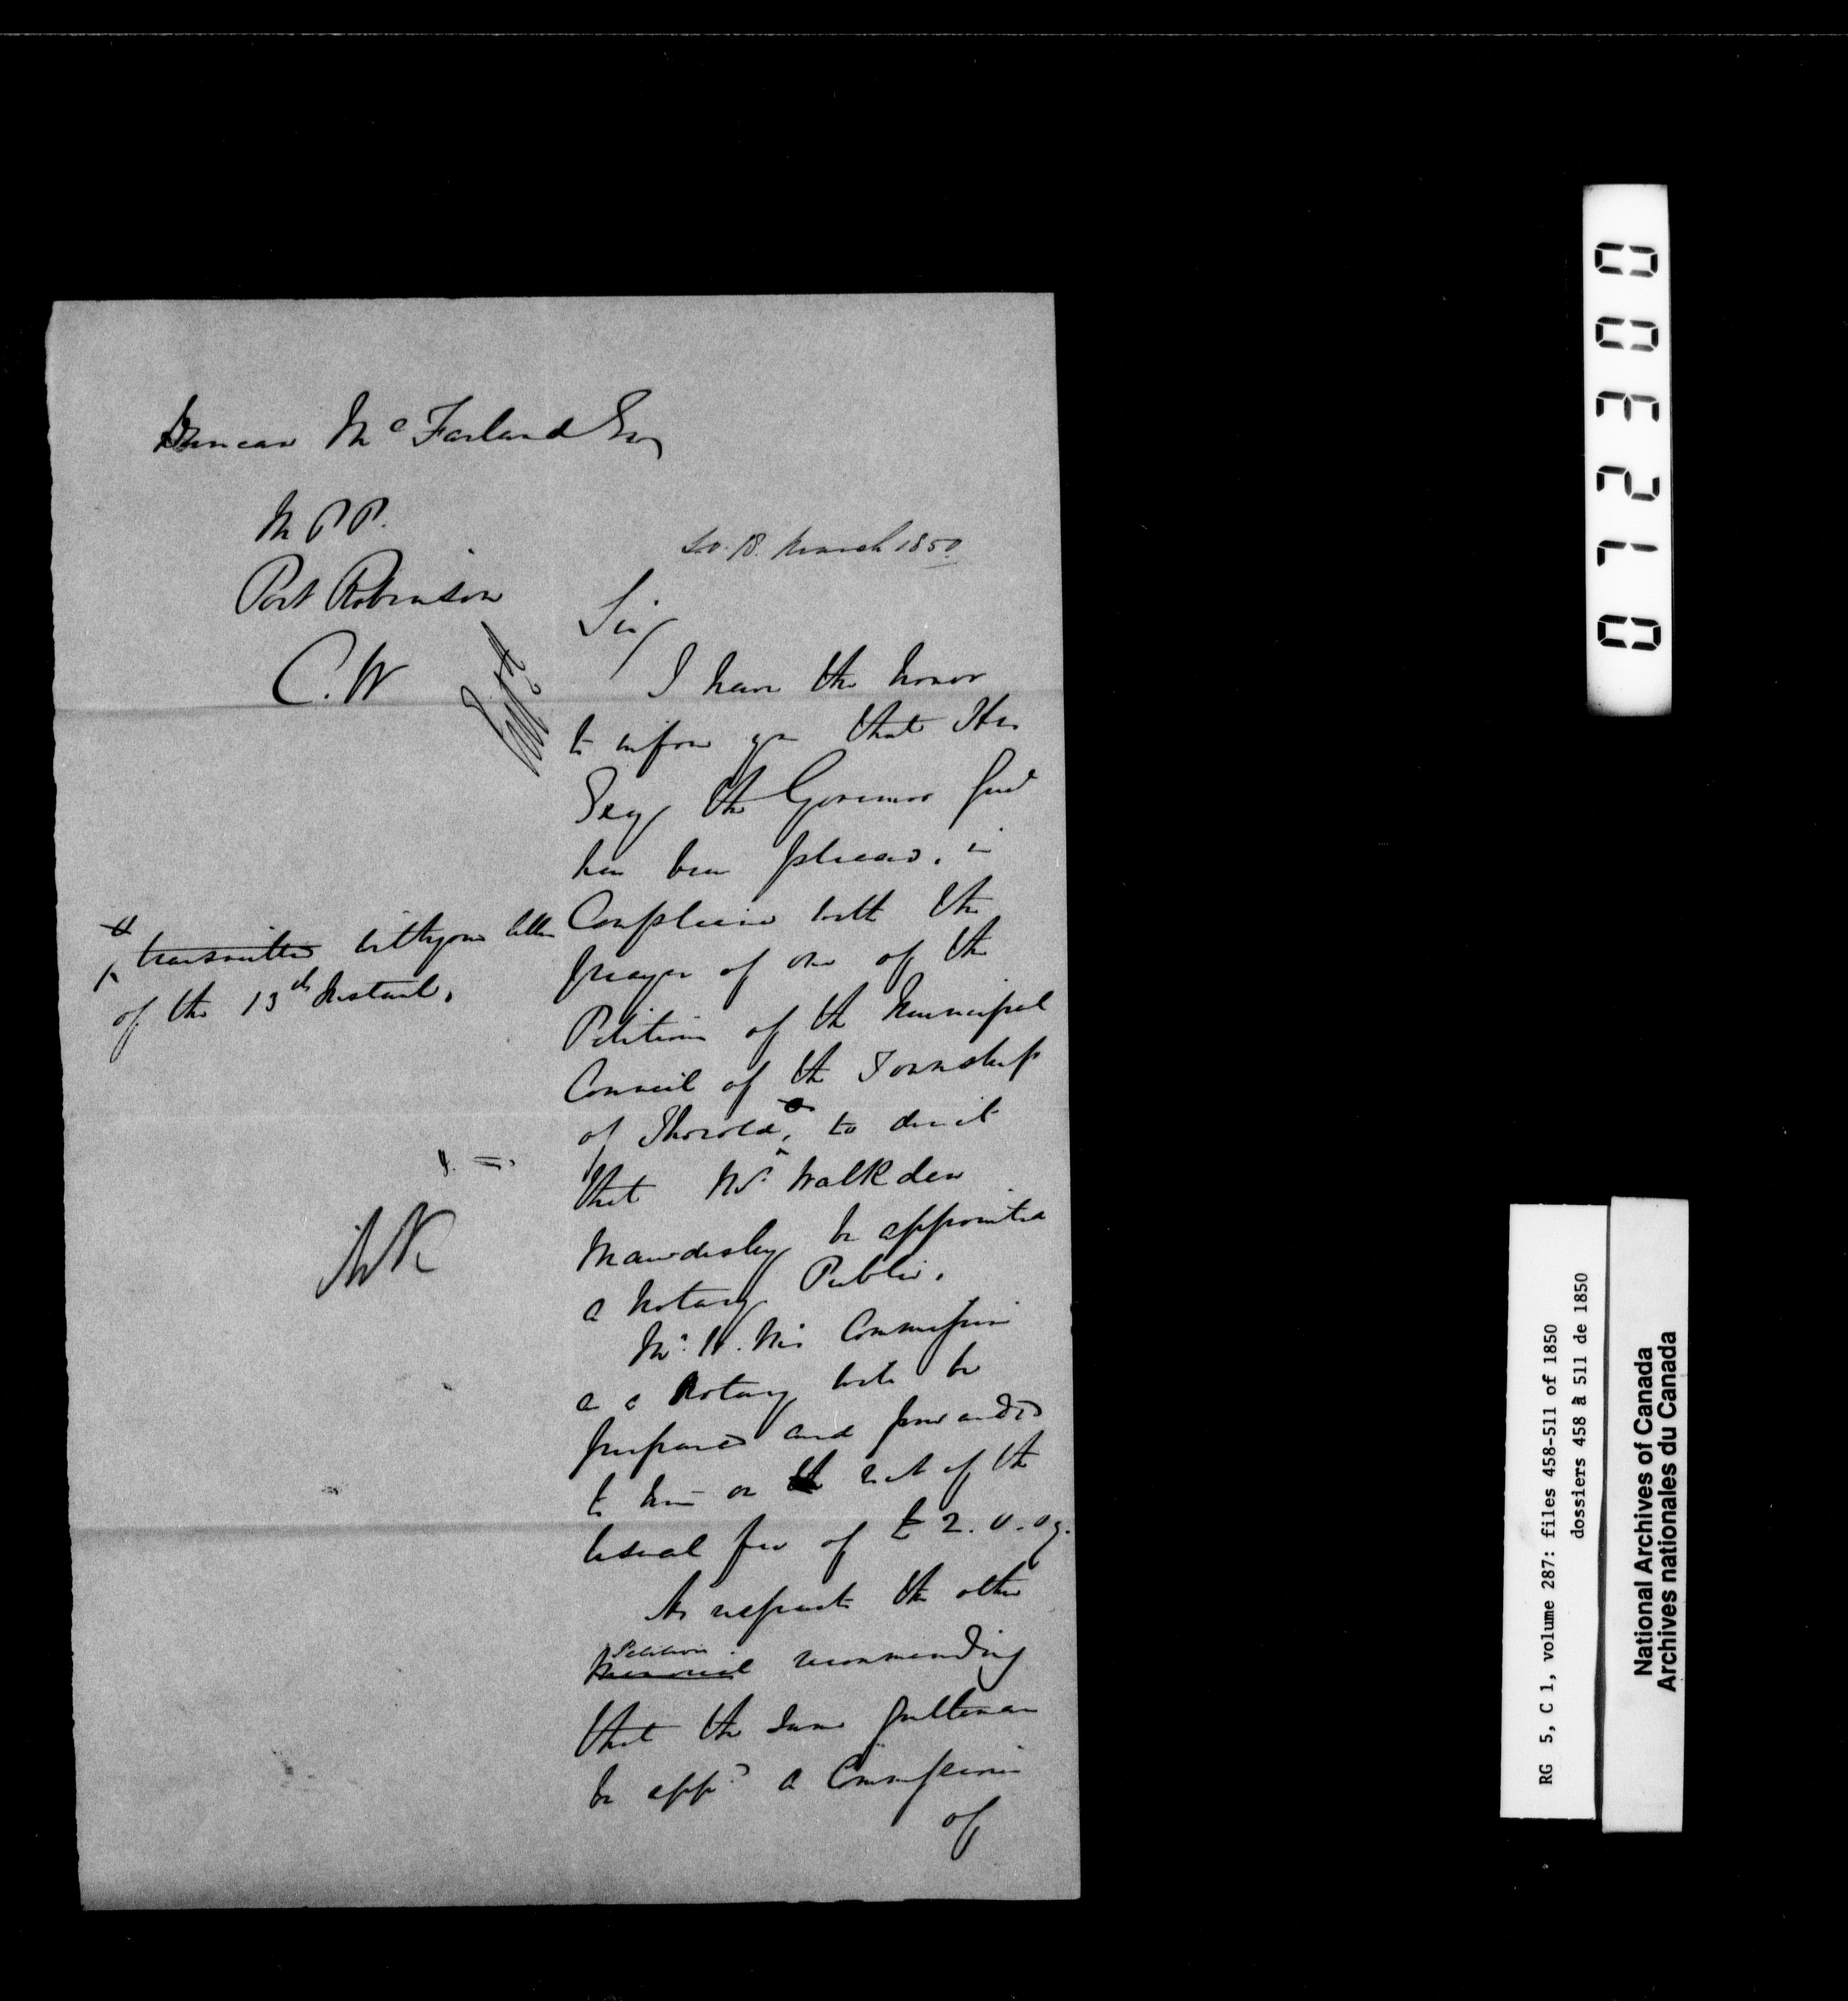 Duncan McFarland Esq
M P P.
Port Robinson
C. W
S.O. 18. March 1850
Sir/
I have the honor
to inform you that His
Excy the Governor Genl
has been pleased, in
Compliance with the
prayer of one of the
Petitions of the Municipal
Council of the Township
of Thorold, to direct
that Mr. Walkden
Mawdesley be appointed
a Notary Public.
Mr. W. M's Commission
as a Notary will be
prepared and forwarded
to him on the rect of the
usual fee of £ 2. 0. 0
As respects the other
Memorial Petition recommending
that the same gentleman
be appd a Commissioner
of
transmitted with your letter
of the 13th Instant.
0 0 3 2 1 0
RG 5, C 1, volume 287: files 458-511 of 1850
dossiers 458 à 511 de 1850
National Archives of Canada
Archives nationales du Canada